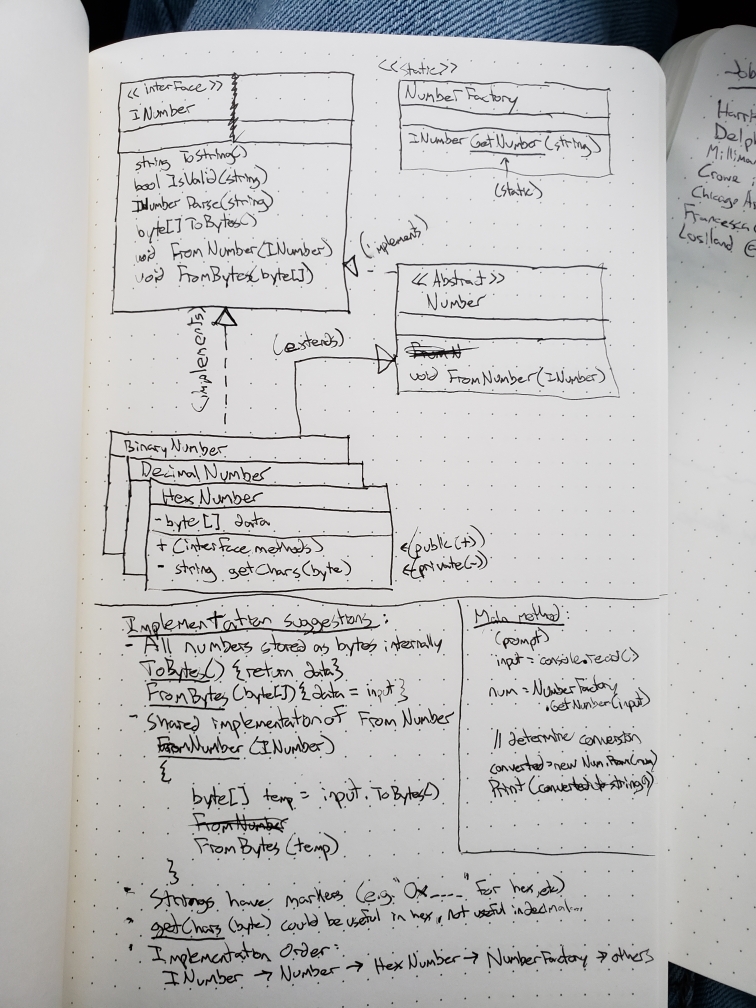 << interface >>
INumber
string ToString()
bool IsValid(string)
INumber Parse(string)
byte[] ToBytes()
void FromNumber(INumber)
void FromBytes(byte[])
<<static>>
NumberFactory
INumber GetNumber(string)
(static)
(implements)
<< Abstract >>
Number
void FromNumber(INumber)
(implements)
(extends)
BinaryNumber
DecimalNumber
HexNumber
- byte[] data
+ (interface methods)
- string getChars(byte)
(public(+)
(private(-)
Implementation suggestions:
- All numbers stored as bytes internally
ToBytes() {return data}
FromBytes(byte[]) {data = input}
- shared implementation of FromNumber
FromNumber(INumber)
{
byte[] temp = input.ToBytes()
FromNumber
FromBytes(temp)
}
- Strings have markers (e.g. "0x____" for hex, etc)
getChars(byte) could be useful in hex, not useful in decimal...
Implementation Order:
INumber → Number → HexNumber → NumberFactory → others
Main method:
(prompt)
input = console.read()
num = NumberFactory
.GetNumber(input)
// determine conversion
converted = new Num.From(num)
Print(converted.toString())
Job
Harri
Delph
Millima
Crowe
Chicago
Francesca